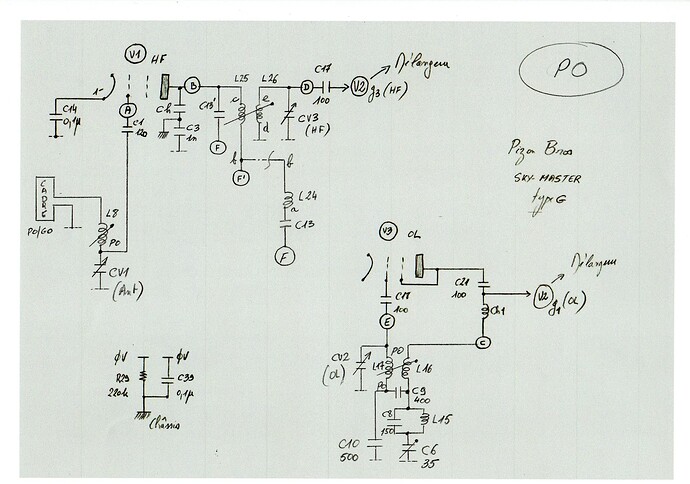 V1
HF
C14
0,1µ
1-
A
C1
120
Ch
C3
1n
B
C13'
F
L25
c
L26
e
d
D
C17
100
CV3
(HF)
V2
g3 (HF)
Mélangeur
PO
b
b
F'
L24
a
C13
F
Pizon Bros
SKY-MASTER
type G
CADRE
PO/GO
L8
PO
CV1
(Ant)
V3
OL
C18
100
E
C21
100
Ch1
C
V2
g1 (OL)
Mélangeur
CV2
(OL)
PO
L17
L16
PO
C9
400
C8
150
L15
C10
500
C6
35
φV
φV
R29
220k
C39
0,1µ
Châssis